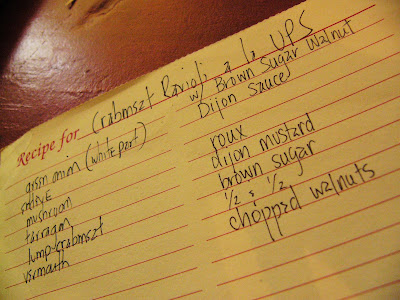 Recipe for Crabmeat Ravioli a la UPS
w/ Brown Sugar Walnut
Dijon Sauce
green onion (white part)
mushroom
tarragon
lump crabmeat
vermouth
roux
dijon mustard
brown sugar
½ & ½
chopped walnuts